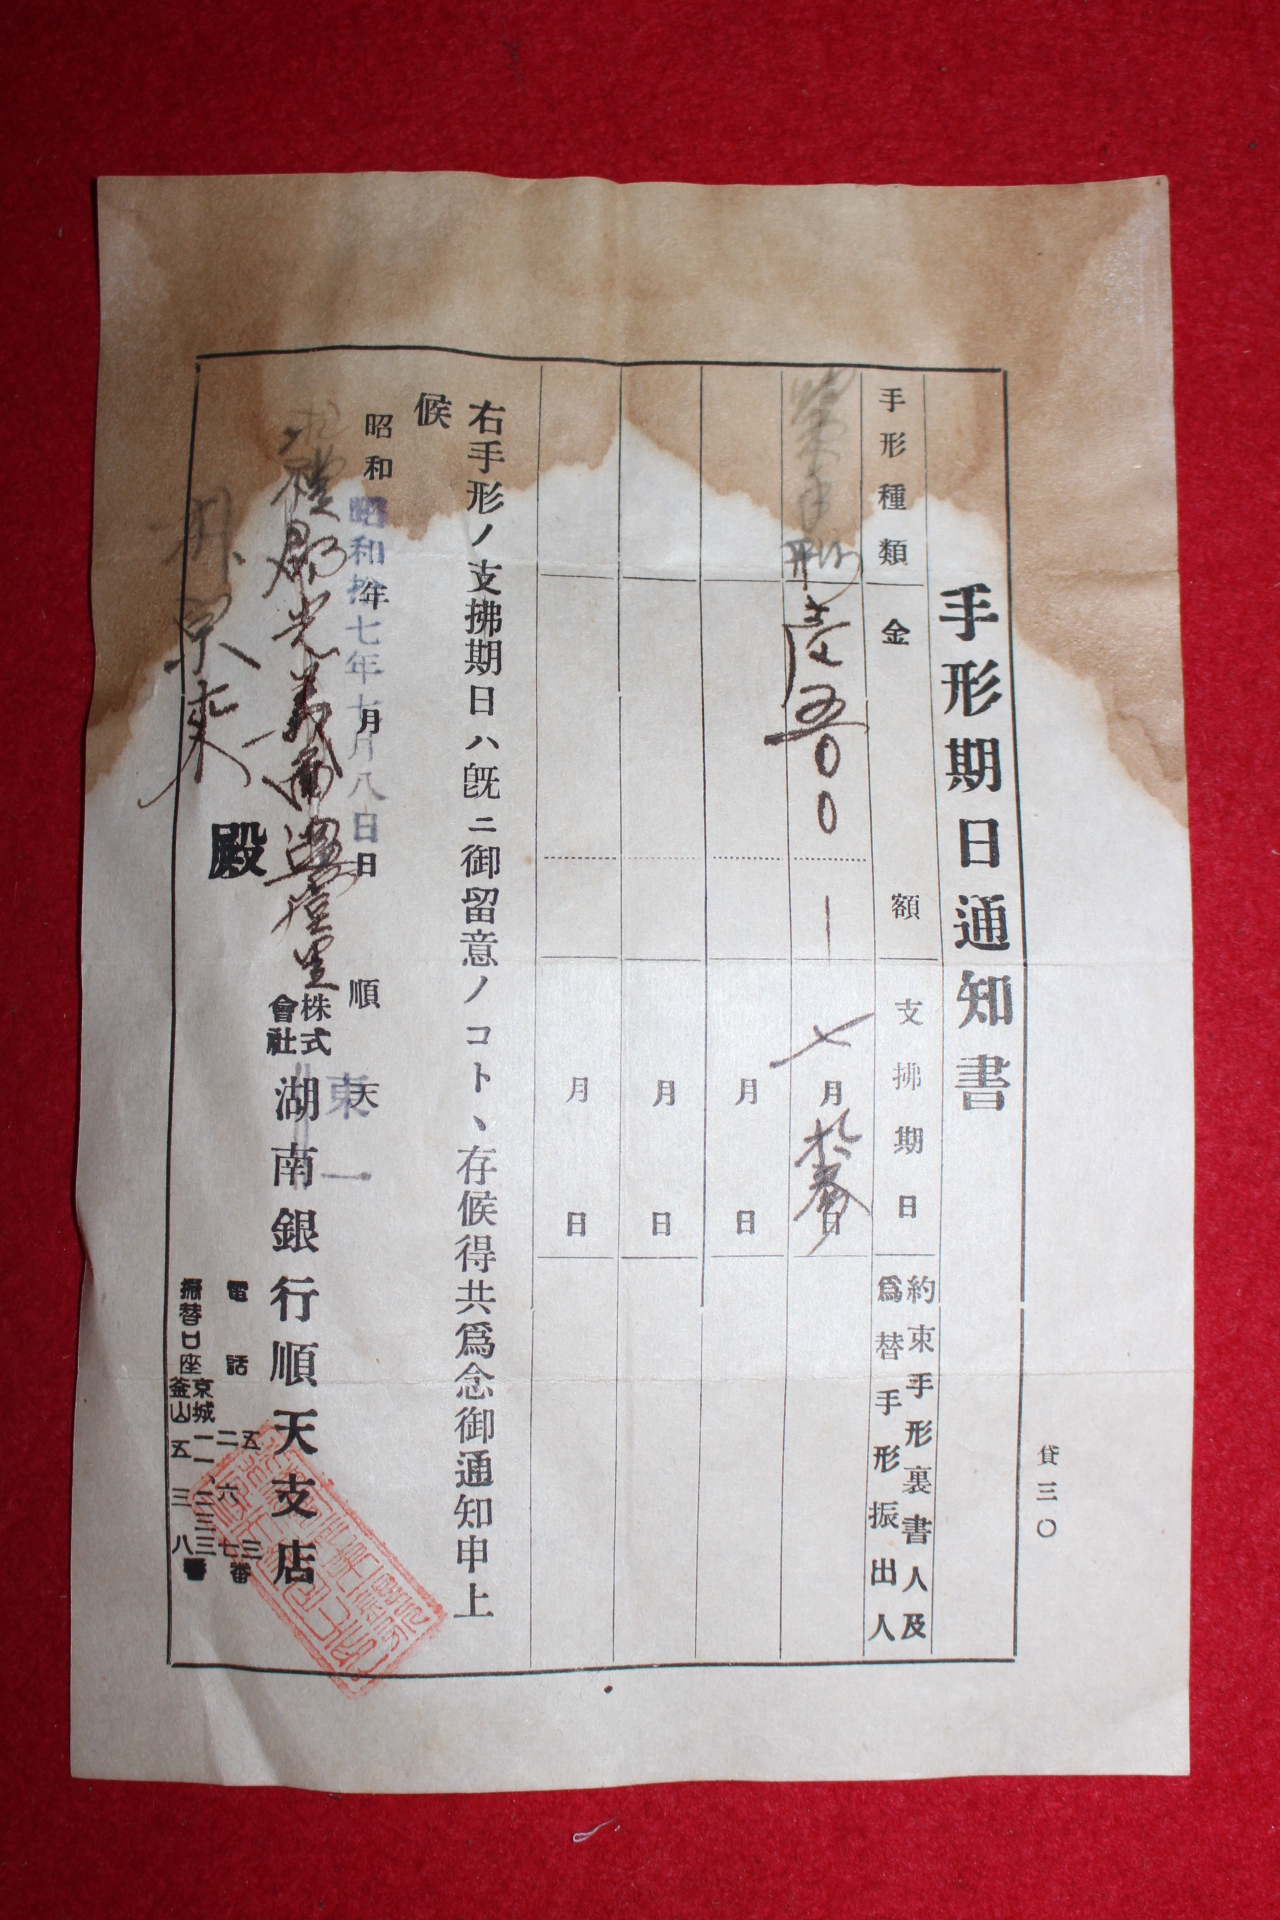 貸三〇
手形期日通知書
手形種類
金額
支拂期日
約束手形裏書人及
為替手形振出人
約束手形
壱五〇〇
七月
月日
月日
月日
右手形ノ支拂期日ハ既ニ御留意ノコトヽ存候得共為念御通知申上
候
昭和年月日
昭和拾七年七月八日
順天
禮郡光義面
株式會社
湖南銀行順天支店
東一
殿
電話
五三
二六七番
振替口座
京城一一、二三三
釜山五三八番